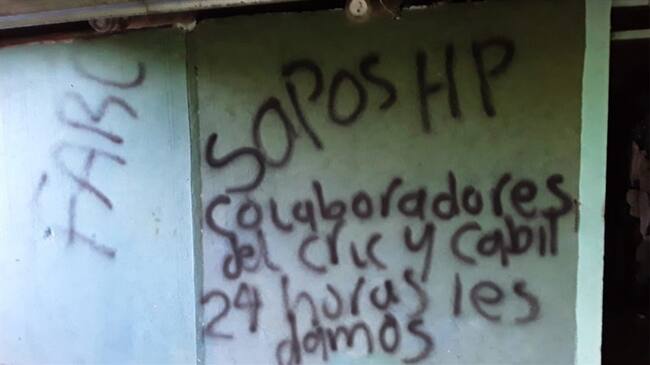 FARC
SOPOS HP
colaboradores
del cric y cabil
24 horas les
damos